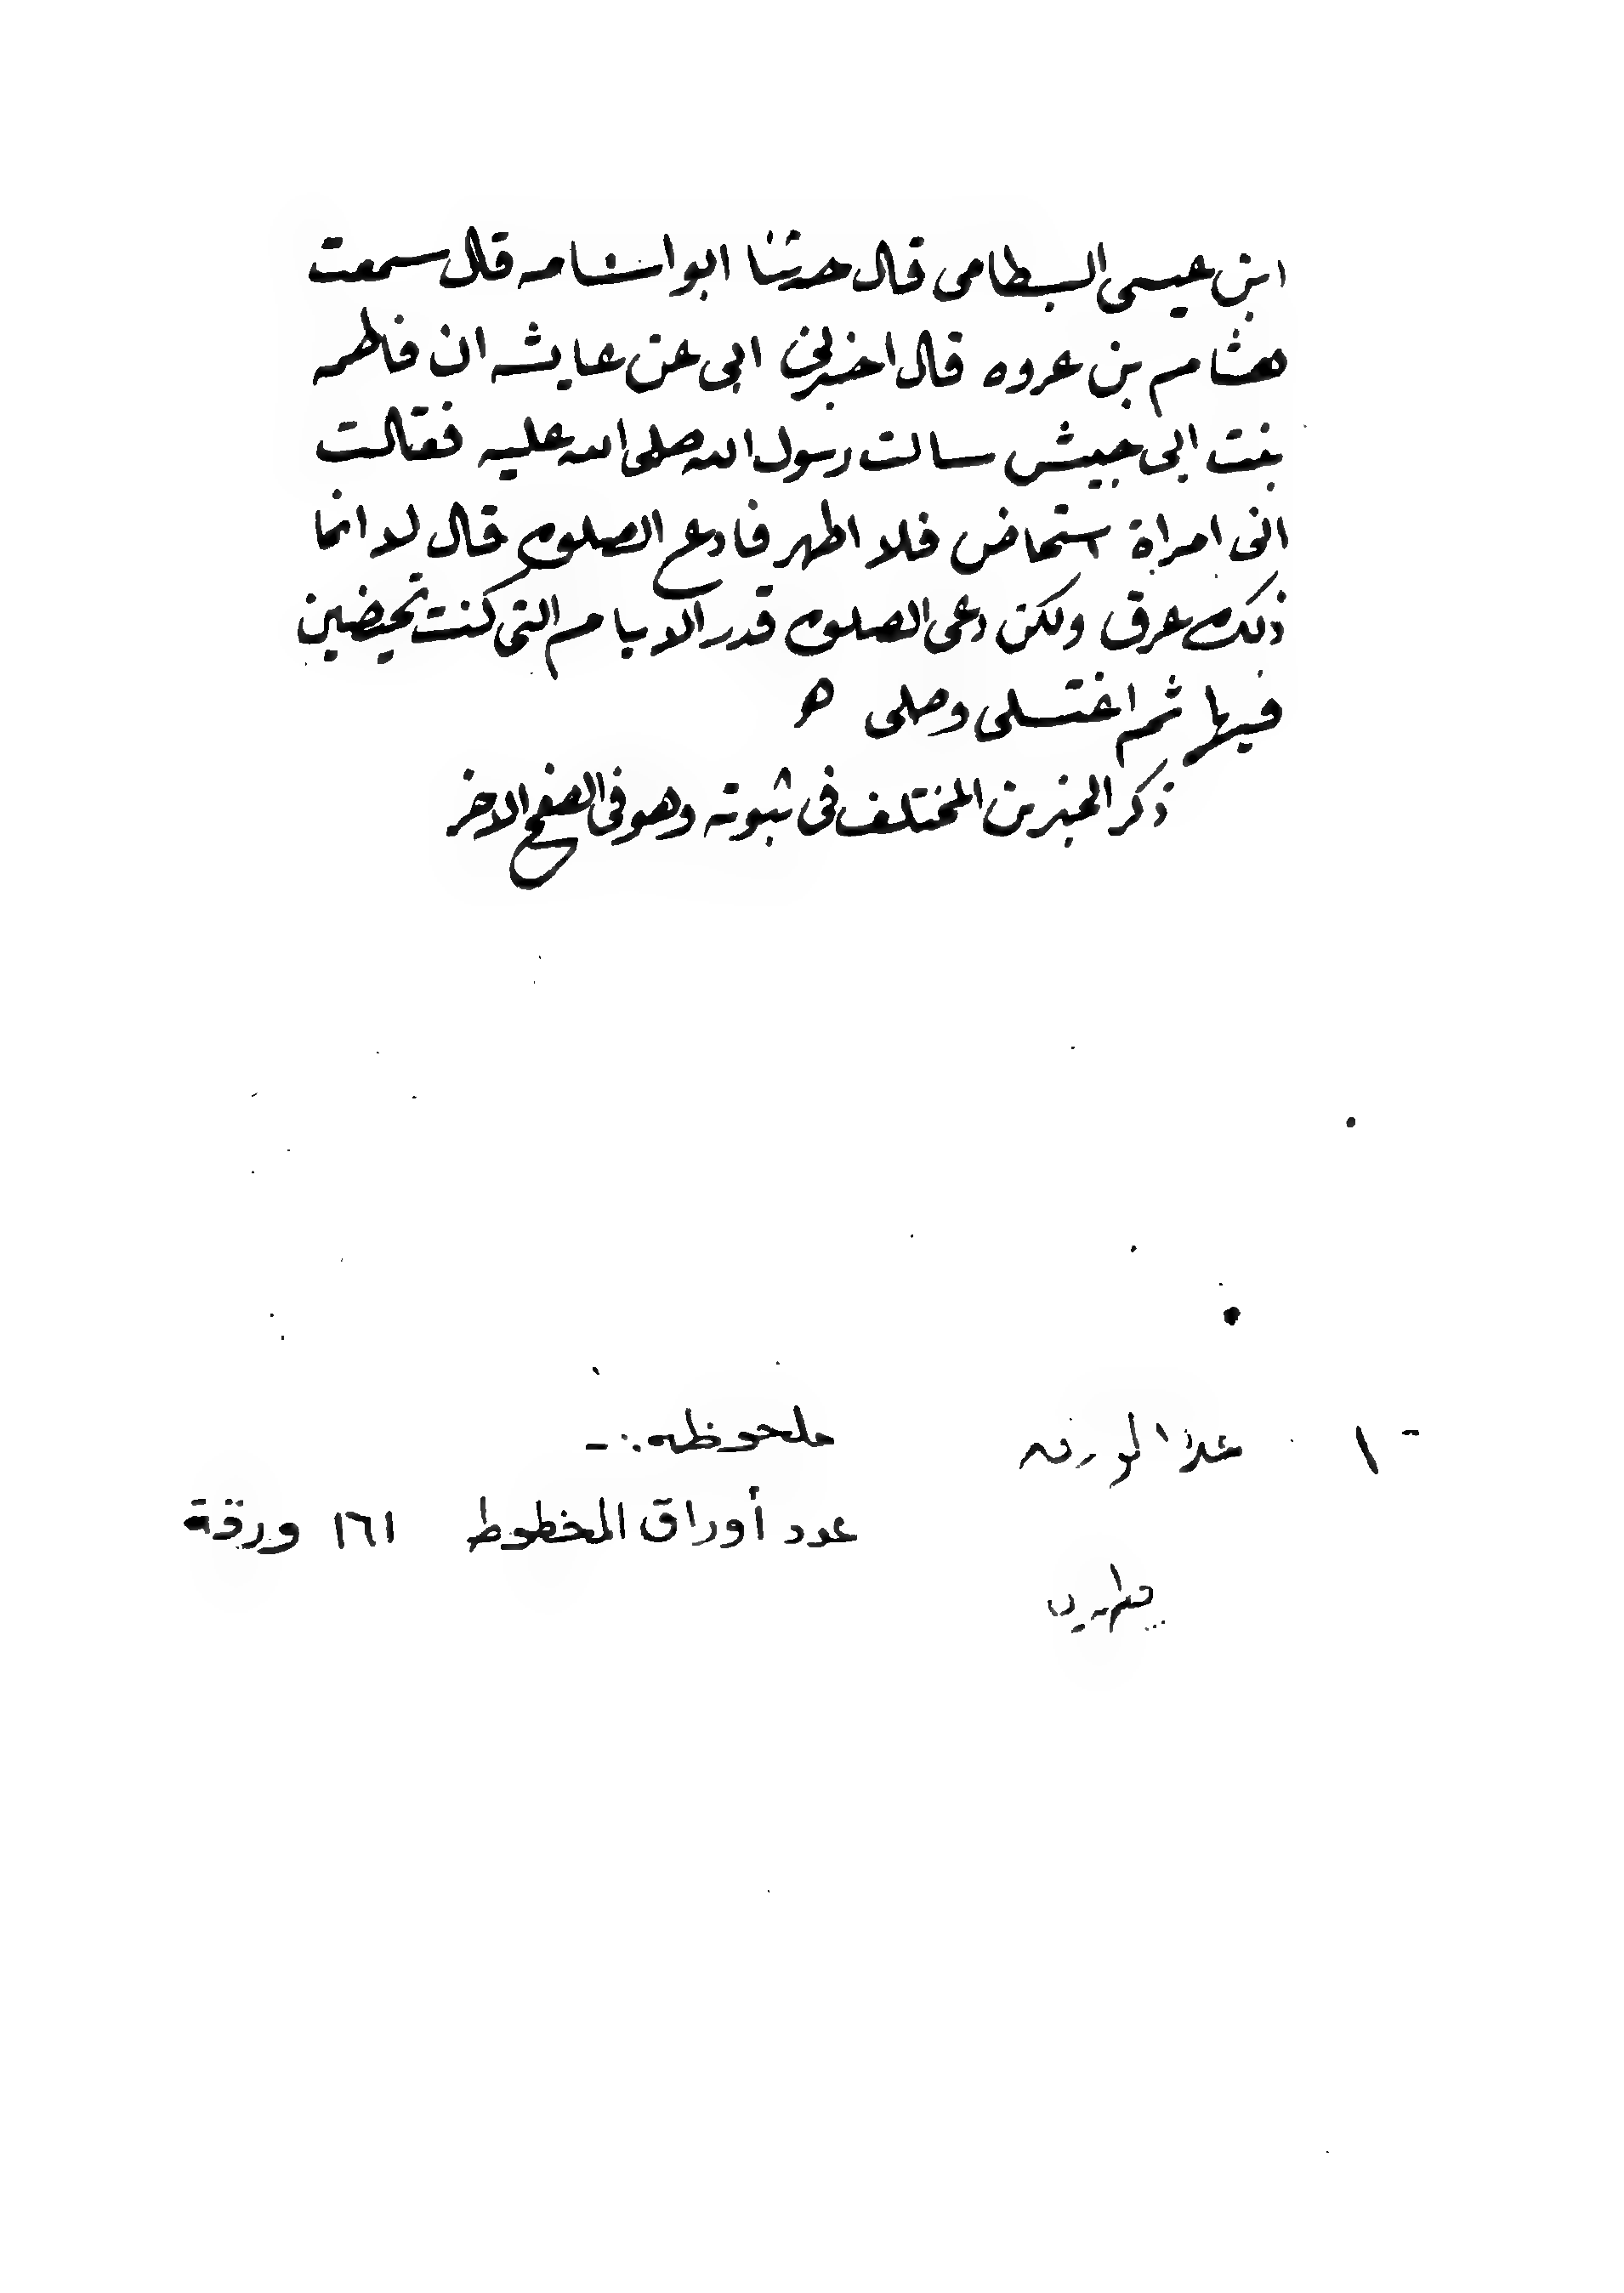 ابن عيسى البسطامى قال حدثنا ابو اسامه قال سمعت
هشام بن عروه قال اخبرنى ابى عن عايشه ان فاطمه
بنت ابى حبيش سالت رسول الله صلى الله عليه فقالت
انى امراة استحاض فلا اطهر فادع الصلوه قال لا انما
ذلك عرق ولكن دعى الصلوه قدر الايام التى كنت تحيضين
فيها ثم اغتسلى وصلى ه
ذكر الخبر من المختلف فى ثبوته وهو فى الصفح الاخر
ملحوظه :-
عدد أوراق المخطوط ١٦١ ورقة